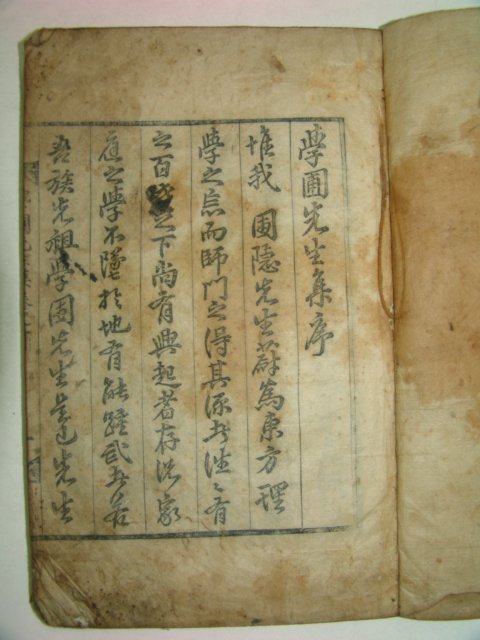 學圃先生集序
惟我 圃隱先生蔚爲東方理
學之宗而師門之得其源者往々有
之百代之下尚有興起者存洪家
庭之學不墜於地有能踵武者若
吾族先祖學圃先生是已先生